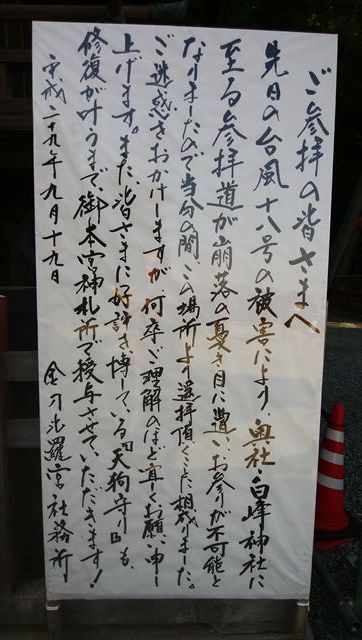 ご参拝の皆さまへ
先日の台風十八号の被害により、奥社・白峰神社に
至る参拝道が崩落の憂き目に遭い、お参りが不可能と
なりましたので当分の間、この場所より遥拝頂くこと相成りました。
ご迷惑をおかけしますが、何卒ご理解のほど宜しくお願い申し
上げます。また皆さまに好評を博している『天狗守り』も、
修復が叶うまで、御本宮神札所で授与させていただきます！
平成二十九年九月十九日 金刀比羅宮社務所